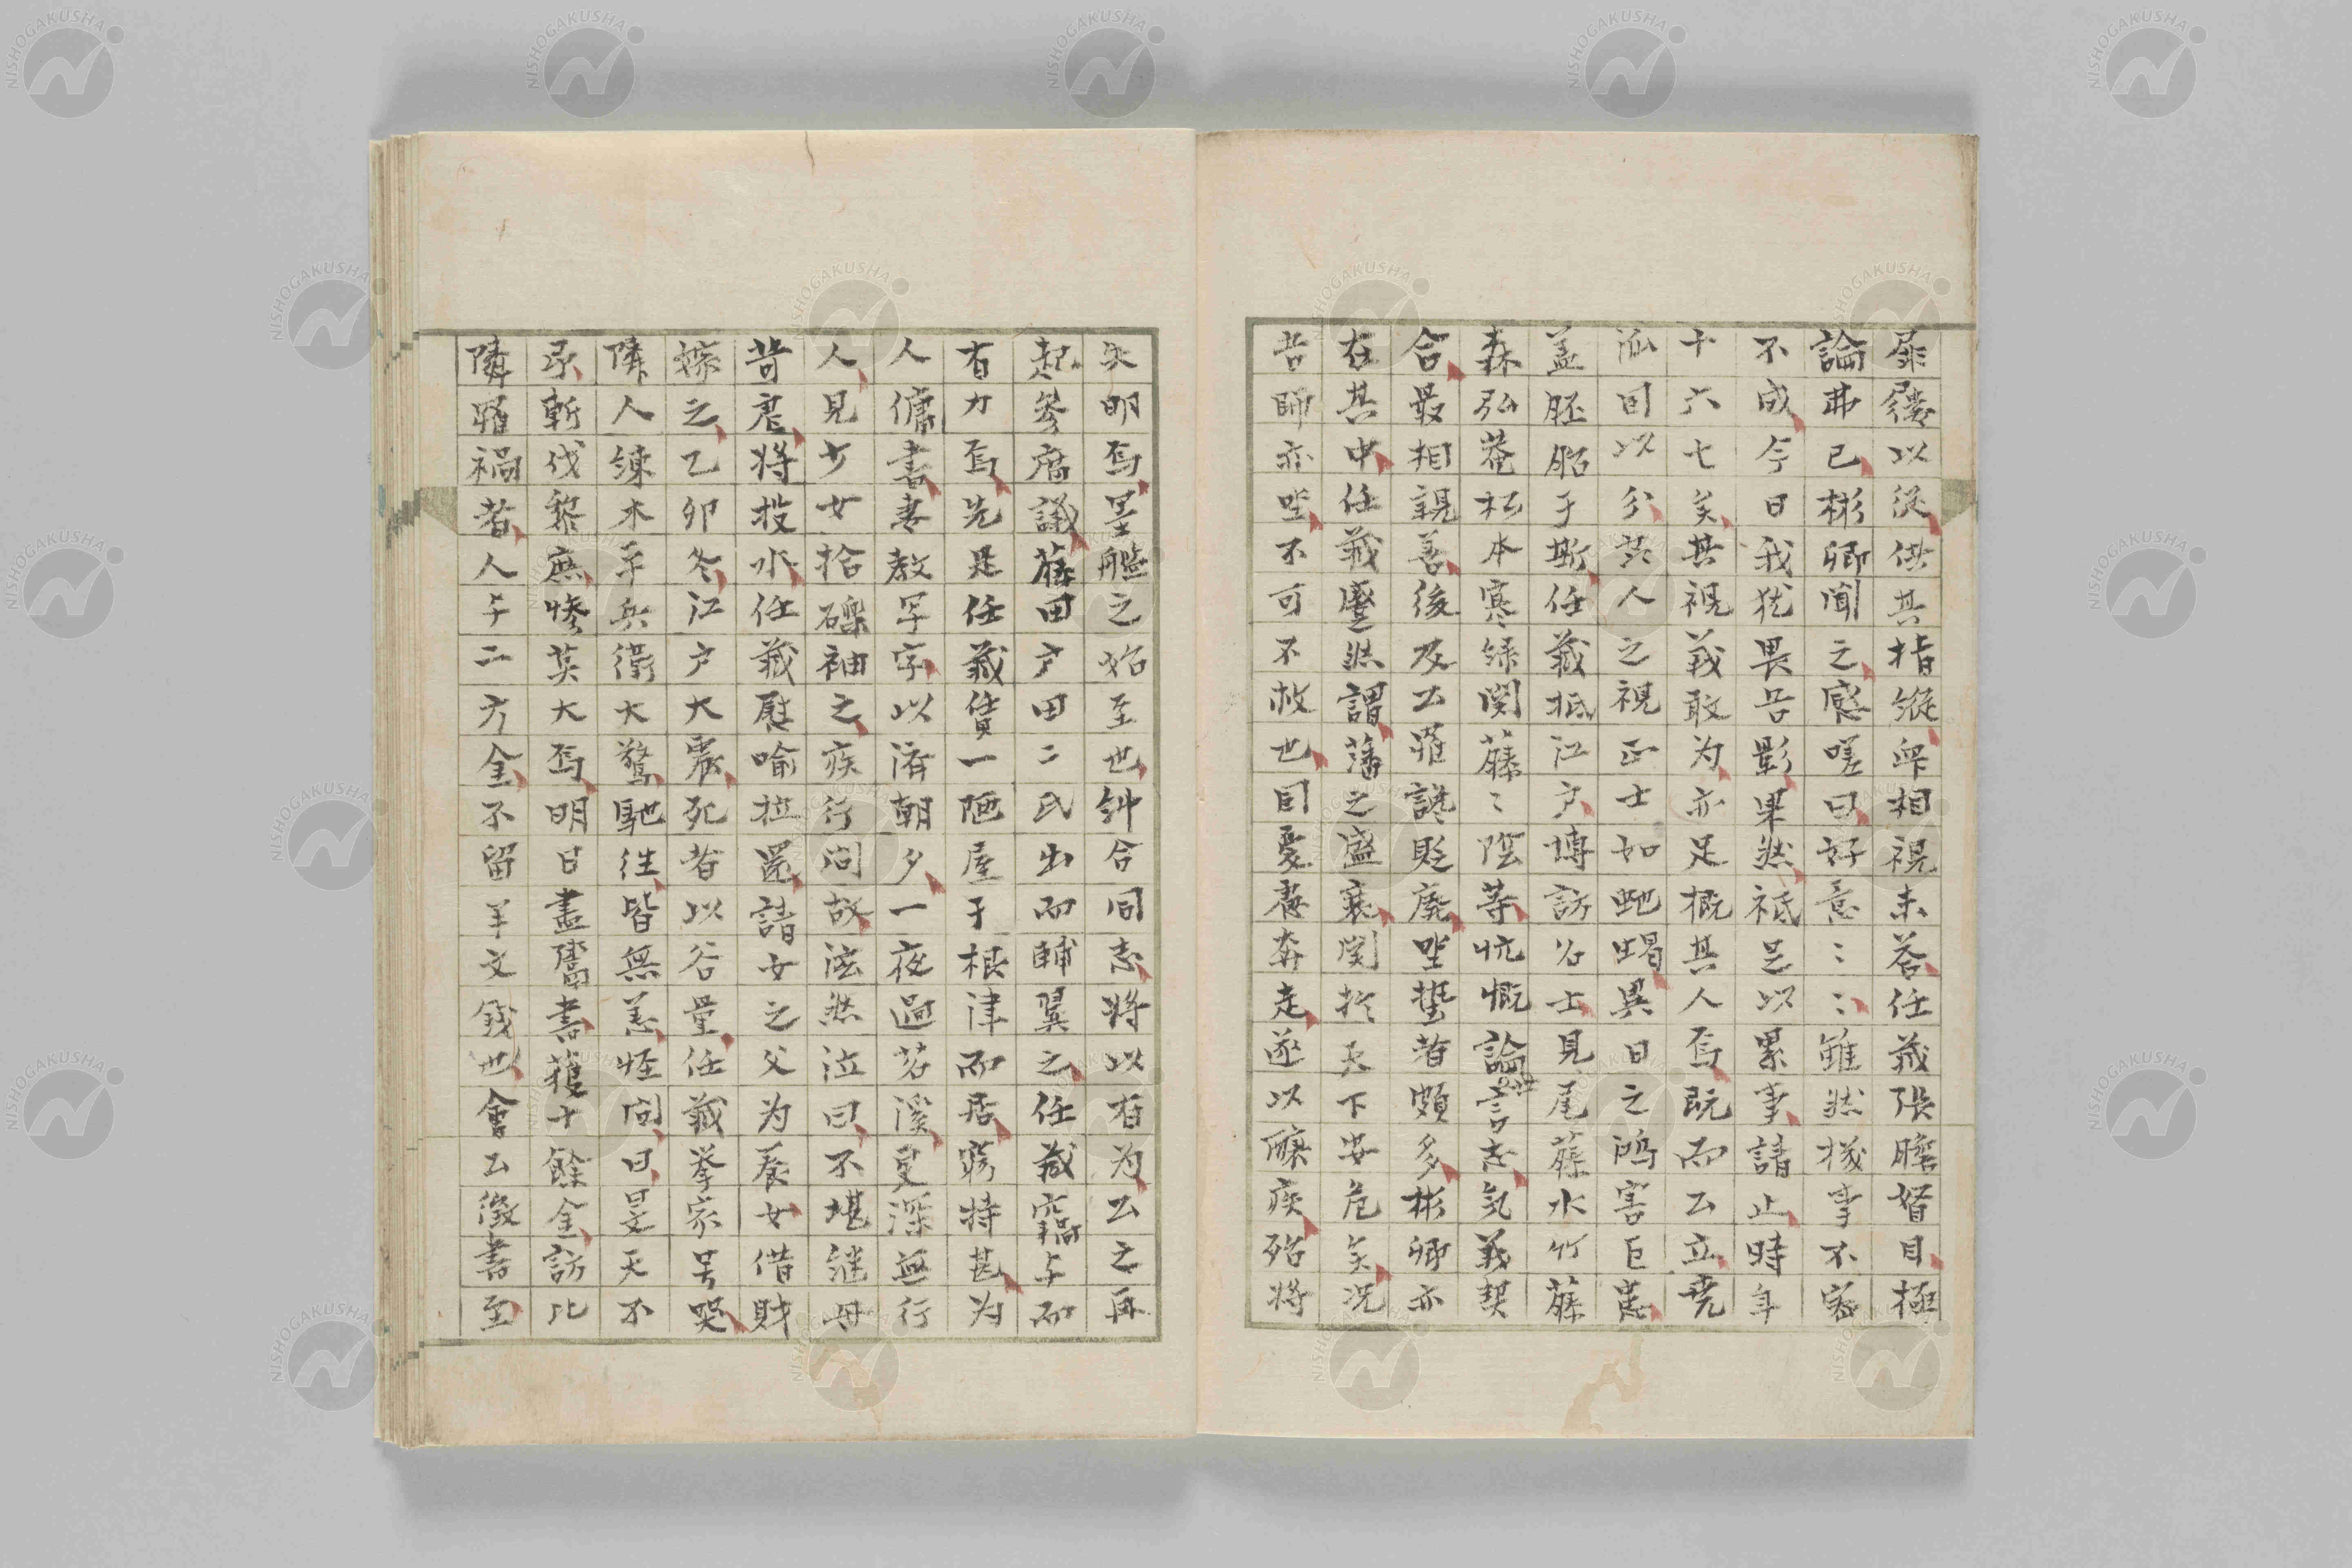 屝屨以從供其指縱舜相視未答任蔵張膽督目極
論弗已彬卿聞之感嗟曰好意〻〻雖然機事不密
不成今日我犹畏吾影果然祗足以累事請止時年
十六七矣其視義敢为亦足概其人焉既而公立堯
泒目以分黄人之視正士如虵蝎異日之鴻害巨
蓋胚胎于斯任蔵抵江戸博訪名士見尾藤水竹藤
森弘菴松本寒緑関藤〻陰等忼慨論世言志気義契
合最相親善後及公罹讒貶廃坐蟄者頗多彬卿亦
在其中任蔵蹙然謂藩之盛衰関於天下安危矣况
吾師亦坐不可不救也因憂慮奔走遂以釀疾殆将
失明焉墨艦之始至也糾合同志将以有为公之再
起参廟議藤田戸田二氏出而輔翼之任蔵窂与而
有力焉先是任蔵僦一陋屋于根津而居窮特甚为
人傭書妻教字以済朝夕一夜過茗溪夏深無行
人見少女拾礫袖之疾行问故泫然泣曰不堪継母
苛虐将投水任蔵慰喻拉還請女之父为養女借財
嫁之乙卯冬江戸大震死者以谷量任蔵挙家号哭
隣人錬木平兵衛大驚馳往皆無恙恠问曰旻天不
弔斬伐黎庶惨莫大焉明日盡鬻書獲十餘金訪比
隣罹禍者人与二方金不留半文銭也會公徴書至